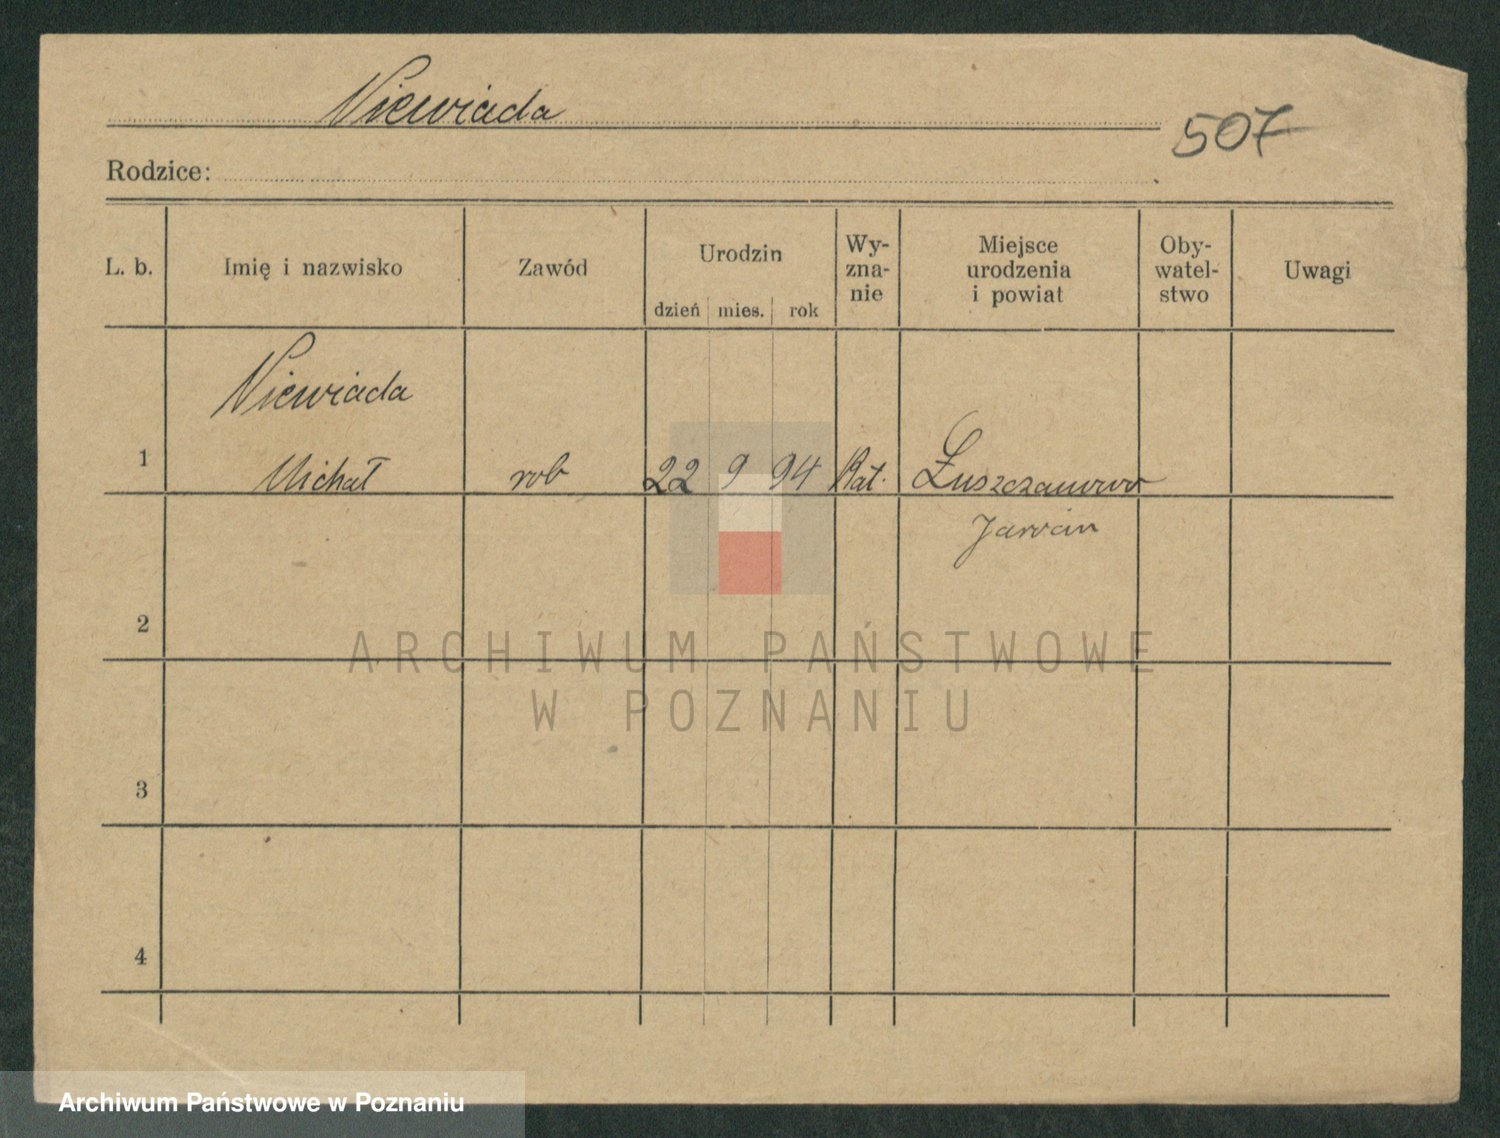 Niewiada
507
Rodzice:
L. b.
Imię i nazwisko
Zawód
Urodzin
dzień mies. rok
Wy-
zna-
nie
Miejsce
urodzenia
i powiat
Oby-
watel-
stwo
Uwagi
Niewiada
1 Michał rob 22 9 94 Kat. Łuszczanowo
Jarocin
2
ARCHIWUM PAŃSTWOWE
W POZNANIU
3
4
Archiwum Państwowe w Poznaniu